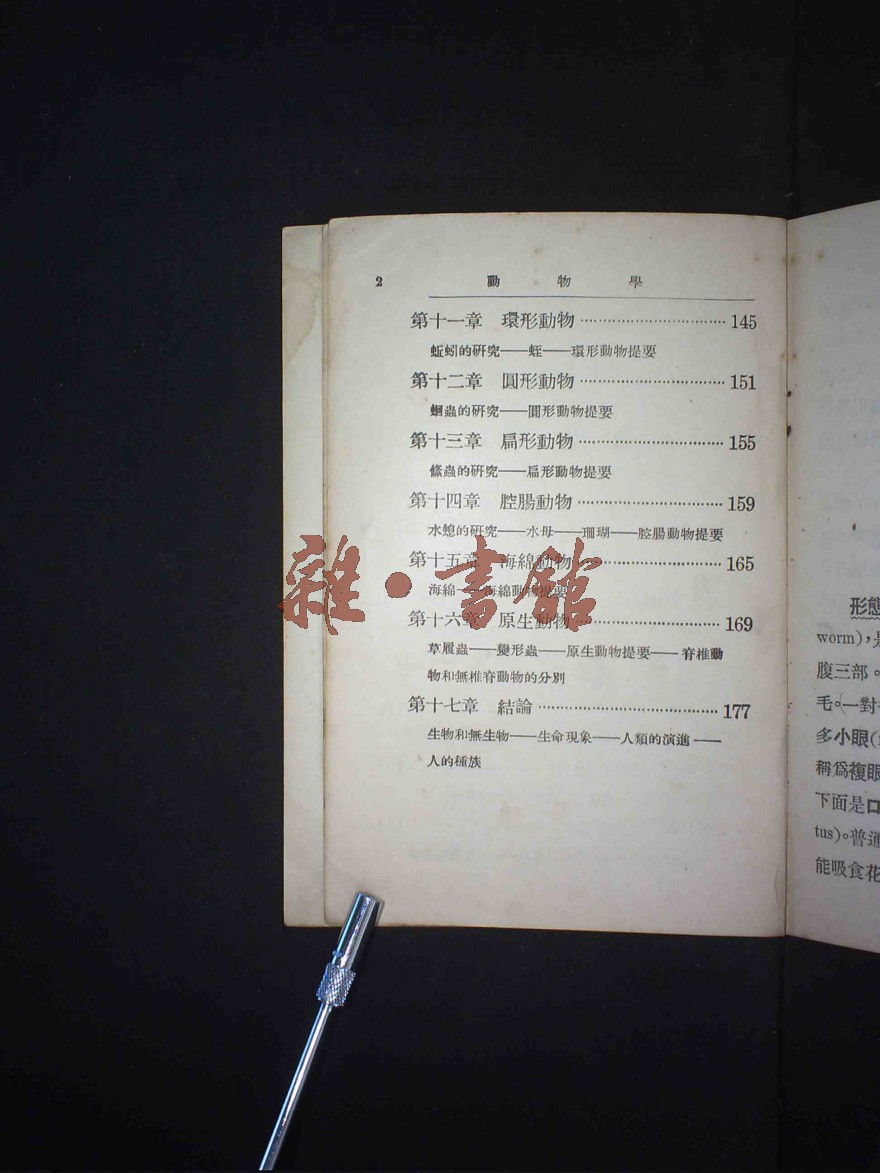 2 動物學
第十一章 環形動物 145
蚯蚓的研究——蛭——環形動物提要
第十二章 圓形動物 151
蛔蟲的研究——圓形動物提要
第十三章 扁形動物 155
絛蟲的研究——扁形動物提要
第十四章 腔腸動物 159
水螅的研究——水母——珊瑚——腔腸動物提要
第十五章 海綿動物 165
海綿——海綿動物提要
第十六章 原生動物 169
草履蟲——變形蟲——原生動物提要——脊椎動
物和無椎脊動物的分別
第十七章 結論 177
生物和無生物——生命現象——人類的演進——
人的種族
雜·書館
形態
worm),
腹三部。
毛。一對
多小眼(
稱爲複眼
下面是口
tus)。普通
能吸食花